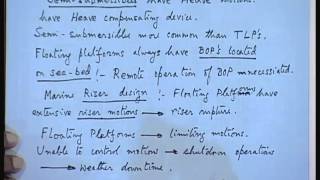 Semi-submersibles have Heave motions.
have Heave compensating device.
Semi-submersible more common than TLP's.
Floating platforms always have BOP's located
on sea-bed :- Remote operation of BOP unnecessiated.
Marine Riser design :- Floating Platforms have
extensive riser motions → riser rupture.
Floating Platforms → limiting motions.
Unable to control motions → shutdown operations
→ weather downtime.